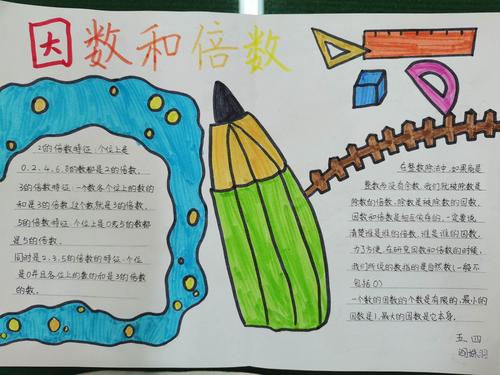 因数和倍数
2的倍数特征:个位上是
0、2、4、6、8的数都是2的倍数。
3的倍数特征:一个数各个位上的数的
和是3的倍数,这个数就是3的倍数。
5的倍数特征:个位上是0或5的数都
是5的倍数。
同时是2、3、5的倍数的特征:个位
是0并且各位上的数的和是3的倍数
的数。
在整数除法中,如果商是
整数而没有余数,我们就说被除数是
除数的倍数,除数是被除数的因数。
因数和倍数是相互依存的,一定要说
清楚谁是谁的倍数,谁是谁的因数。
为了方便,在研究因数和倍数的时候,
我们所说的数指的是自然数(一般不
包括0)
一个数的因数的个数是有限的,最小的
因数是1,最大的因数是它本身。
五、四